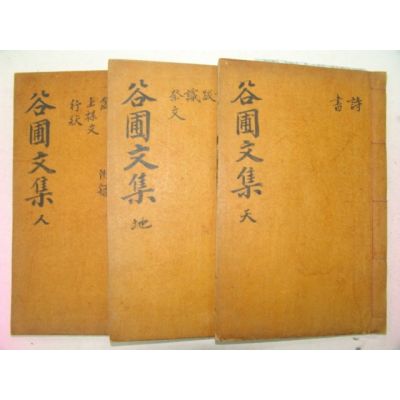 詩
書
谷圃文集 天
跋
識
祭文
谷圃文集 地
上樑文
行狀
谷圃文集 人